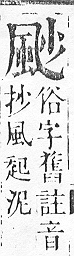 俗字舊註音
抄風起泥